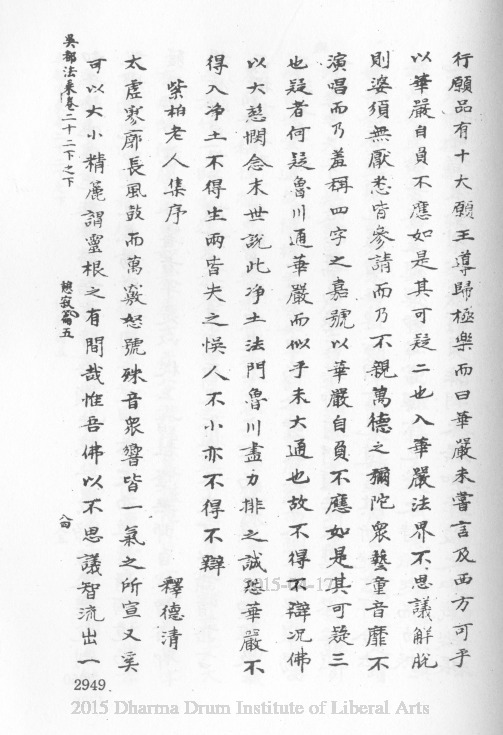 行願品有十大願王導歸極樂而曰華嚴未嘗言及西方可乎
以華嚴自負不應如是其可疑二也入華嚴法界不思議解脫
則婆須無厭悉皆參請而乃不親萬德之彌陀眾藝童音靡不
演唱而乃羞稱四字之嘉號以華嚴自負不應如是其可疑三
也疑者何疑魯川通華嚴而似乎未大通也故不得不辯况佛
以大慈憫念末世說此淨土法門魯川盡力排之誠恐華嚴不
得入淨土不得生兩皆失之悞人不小亦不得不辯
紫柏老人集序
釋德清
太虛寥廓長風鼓而萬竅怒號殊音眾響皆一氣之所宣又奚
可以大小精麤謂靈根之有間哉惟吾佛以不思議智流出一
吳都法乘卷二十二下之下
憩寂篇五
八四
2949
2015 Dharma Drum Institute of Liberal Arts